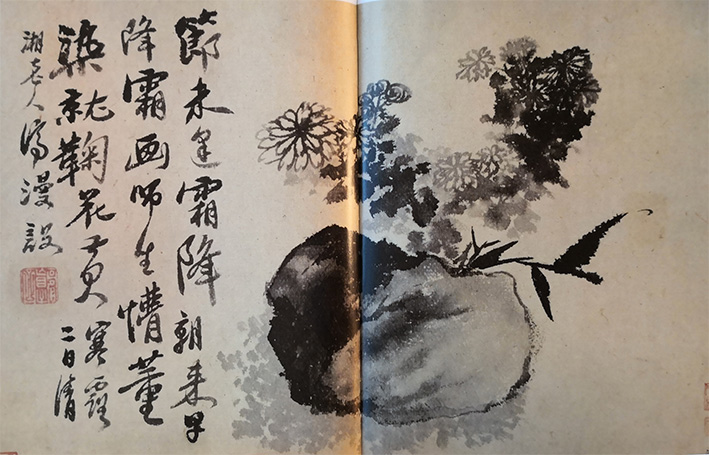 節未逢霜降朝来早
降霜画师生懵董
染就鞠花黄寒露
二日清
湘老人濟漫設